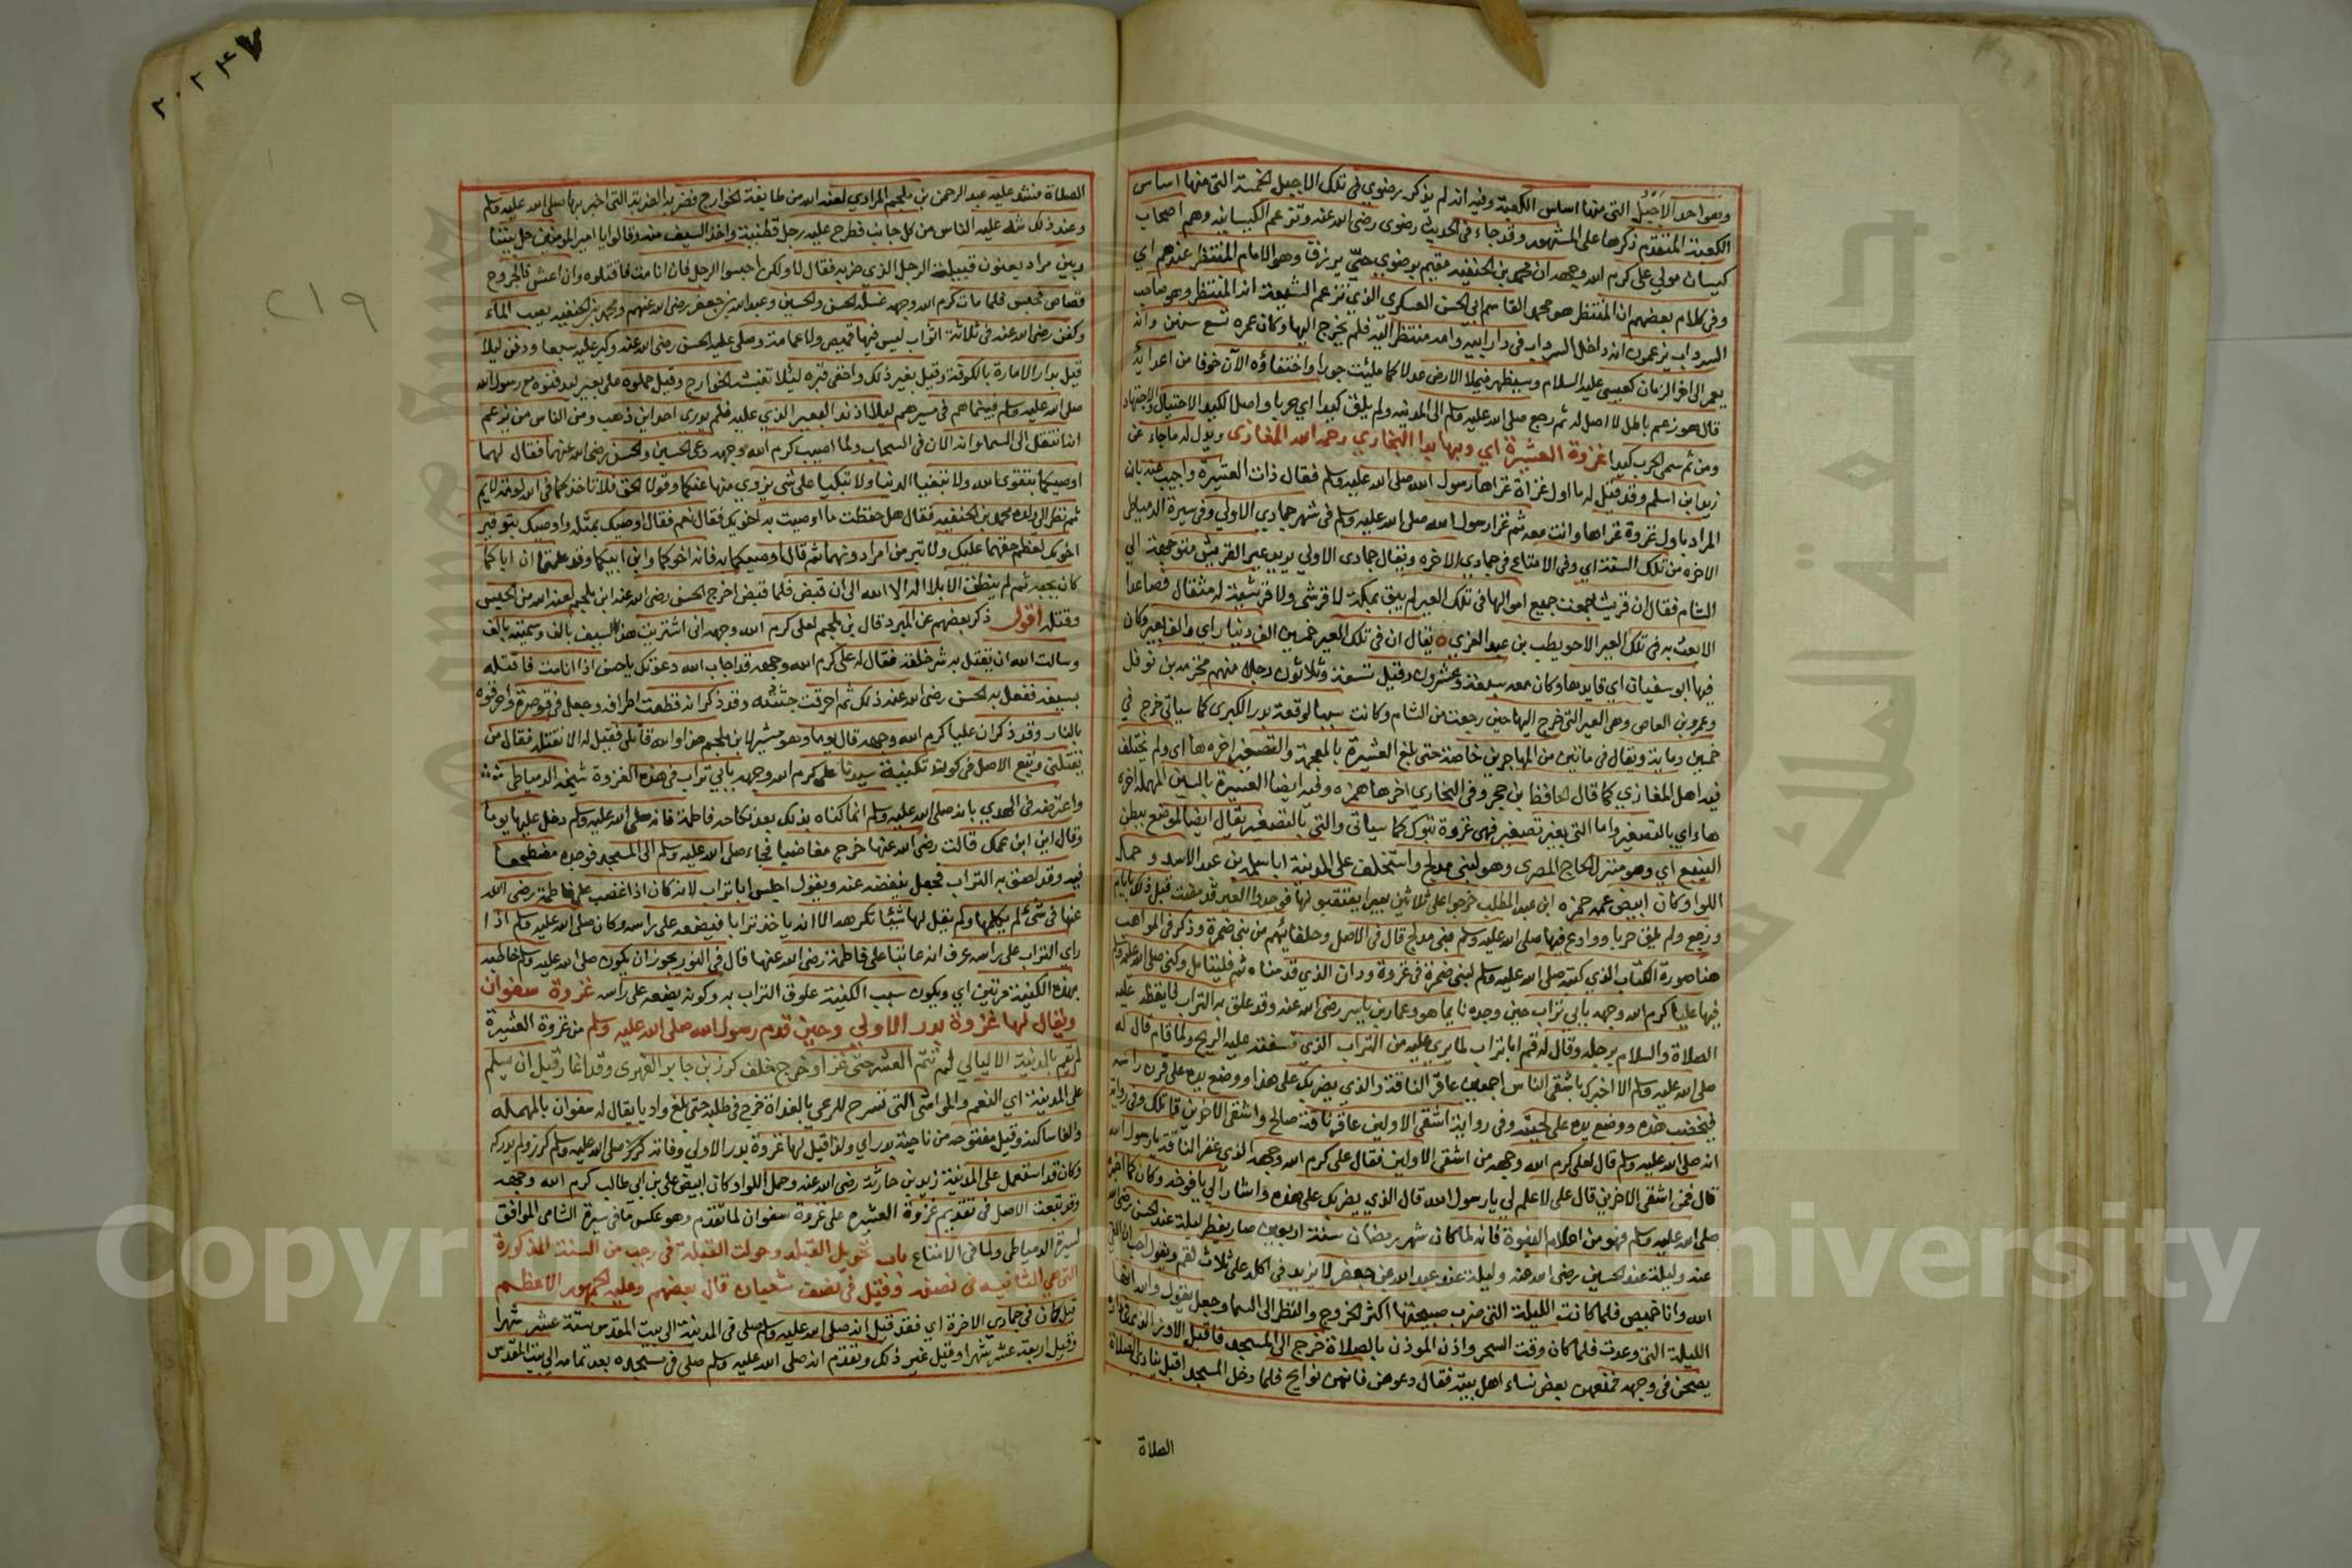 وهو احد الاجبل التي منها اساس الكعبة وفيه انه لم يذكر رضوي في تلك الاجبل الخمسة التي منها اساس
الكعبة المتقدم ذكرها على المشهور وقد جاء في الحديث رضوى رضي الله عنه وتزعم الكيسانيه وهم اصحاب
كيسان مولي على كرم الله وجهه ان محمد بن الحنفيه مقيم برضوي حيّ يرزق وهو الامام المنتظر عندهم اي
وفي كلام بعضهم ان المنتظر هو محمد القاسم ابي الحسن العسكري الذي تزعم الشيعة انه المنتظر وهو صاحب
السرداب يزعمون انه داخل السرداب في دار ابيه وامه منتظر اليه فلم يخرج اليها وكان عمره تسع سنين وانه
يعمر الى اخر الزمان كعيسى عليه السلام وسيظهر فيملا الارض عدلا كما ملئت جورا واختفاؤه الآن خوفا من اعدائه
قال هو زعم باطل لا اصل له ثم رجع صلى الله عليه وسلم الى المدينه ولم يلق كيدا اي حربا واصل الكيد الاحتيال والاجتهاد
ومن ثم سمى الحرب كيدا غزوة العشيرة اي وبها بدا البخاري رحمه الله المغازى ويدل له ما جاء عن
زيد ابن اسلم وقد قيل له ما اول غزاة غزاها رسول الله صلى الله عليه وسلم فقال ذات العشيرة واجيب عنه بان
المراد باول غزوة غزاها وانت معه ثم غزا رسول الله صلى الله عليه وسلم في شهر جمادي الاولي وفي سيرة الدمياطي
الاخره من تلك السنة اي وفي الامتاع في جمادي الاخره ويقال جمادى الاولي يريد عير القريش متوجهة الي
الشام فقال ان قريشا جمعت جميع اموالها في تلك العير لم يبق بمكة لا قرشي ولا قرشية له مثقال فصاعدا
الا بعث به في تلك العير الا حويطب بن عبد العزي ه يقال ان في تلك العير خمسين الف دينار اي والف بعير وكان
فيها ابو سفيان اي قايدها وكان معه سبعة وعشرون وقيل تسعة وثلاثون رجلا منهم مخزمه بن نوفل
وعمرو بن العاص وهي العير التي خرج اليها حين رجعت من الشام وكانت سببا لوقعة بدر الكبرى كما سياتي خرج في
خمسين وماية ويقال في ماتين من المهاجرين خاصة حتى بلغ العشيرة بالمعجمه والتصغير اخره ها اى ولم يختلف
فيه اهل المغازي كما قال الحافظ بن حجر وفي البخاري اخرها همزه وفيه ايضا العسيرة بالسين المهمله اخره
هاء اي بالتصغير واما التي بغير تصغير فهى غزوة تبوك كما سياتى والتي بالتصغير يقال ايضا لموضع ببطن
الينبع اي وهو منزل الحاج المصرى وهو لبني مدلج واستخلف على المدينة ابا سلمه بن عبد الاسد وحمل
اللوا وكان ابيض عمه حمزه ابن عبد المطلب خرجوا على ثلاثين بعيرا يعتقبونها فوجدوا العير قد مضت قبل ذلك بايام
ورجع ولم يلق حربا ووادع فيها صلى الله عليه وسلم بني مدلج قال في الاصل وحلفائهم من بني ضمرة وذكر في المواهب
هنا صورة الكتاب الذي كتبه صلى الله عليه وسلم لبني ضمرة في غزوة ودان الذي قدمناه ثم فليتامل وكنى صلى الله عليه وسلم
فيها عليا كرم الله وجهه بابي تراب حين وجده نايما هو وعمار بن ياسر رضي الله عنه وقد علق به التراب فايقظه عليه
الصلاة والسلام برجله وقال له قم ابا تراب لما يرى عليه من التراب الذي تسفه عليه الريح ولما قام قال له
صلى الله عليه وسلم الا اخبرك باشقى الناس اجمعين عاقر الناقة والذي يضربك على هذا ووضع يده على قرن راسه
فيخضب هذه ووضع يده على لحيته وفي رواية اشقى الاولين عاقر ناقة صالح واشقى الاخرين قاتلك وفي رواية
انه صلى الله عليه وسلم قال لعلى كرم الله وجهه من اشقى الاولين فقال على كرم الله وجهه الذي عقر الناقة يا رسول الله
قال فمن اشقى الاخرين قال على لا علم لي يا رسول الله قال الذي يضربك على هذه واشار الي يافوخه وكان كما اخبر
صلى الله عليه وسلم فهو من اعلام النبوة فانه لما كان شهر رمضان سنة اربعين صار يفطر ليلة عند الحسن رضي الله
عنه وليلة عند الحسين رضي الله عنه وليلة عند عبد الله بن جعفر لا يزيد في اكله على ثلاث لقم ويقول احب ان القى
الله وانا خميص فلما كانت الليلة التي ضرب صبيحتها اكثر الخروج والنظر الى السما وجعل يقول والله انها
الليلة التي وعدت فلما كان وقت السحر واذن الموذن بالصلاة خرج الى المسجد فاقبل الاوز
يصحن في وجهه فمنعهن بعض نساء اهل بيته فقال دعوهن فانهن نوايح فلما دخل المسجد اقبل ينادى الصلاة
الصلاة
٢٠٢٤٧
٢١٩
الصلاة فشد عليه عبد الرحمن بن ملجم المرادي لعنه الله من طايفة الخوارج فضربه الضربة التي اخبر بها صلى الله عليه وسلم
وعند ذلك شد عليه الناس من كل جانب فطرح عليه رجل قطيفة واخذ السيف منه وقالوا يا امير المومنين خل بيننا
وبين مراد يعنون قبيلة الرجل الذي ضربه فقال لا ولكن احبسوا الرجل فان انا مت فاقتلوه وان اعش فالجروح
قصاص فحبس فلما مات كرم الله وجهه غسله الحسن والحسين وعبد الله بن جعفر رضى الله عنهم ومحمد بن الحنفيه يصب الماء
وكفن رضي الله عنه في ثلاثة اثواب ليس فيها قميص ولا عمامة وصلى عليه الحسن رضي الله عنه وكبر عليه سبعا ودفن ليلا
قيل بدار الامارة بالكوفة وقيل بغير ذلك واخفى قبره ليئلا تنبشه الخوارج وقيل حملوه على بعير ليدفنوه مع رسول الله
صلى الله عليه وسلم فبينماهم في مسيرهم ليلا اذ ند البعير الذي عليه فلم يدرى احد اين ذهب ومن الناس من يزعم
انه انتقل الى السماء وانه الان في السحاب ولما اصيب كرم الله وجهه دعى الحسين والحسن رضى الله عنهما فقال لهما
اوصيكما بتقوى الله ولا تبغيا الدنيا ولا تبكيا على شي يزوى منها عنكما وقولا الحق فلا تاخذكما في الله لومة لايم
ثم نظر الى ولده محمد بن الحنفيه فقال هل حفظت ما اوصيت به اخويك فقال نعم فقال اوصيك بمثله واوصيك بتوقير
اخويك لعظم حقهما عليك ولا تبرمن امرا دونهما ثم قال اوصيكما به فانه اخوكما وابن ابيكما وقد علمتما ان اباكما
كان يحبه ثم لم ينطق الا بلا اله الا الله الى ان قبض فلما قبض اخرج الحسن رضى الله عنه ابن ملجم لعنه الله من الحبس
وقتله اقول ذكر بعضهم عن المبرد قال بن ملجم لعلى كرم الله وجهه اني اشتريت هذا السيف بالف وسميته بالف
وسالت الله ان يقتل به شر خلقه فقال له على كرم الله وجهه قد اجاب الله دعوتك يا حسن اذا انا مت فاقتله
بسيفه ففعل به الحسن رضي الله عنه ذلك ثم احرقت جثته وقد ذكر انه قطعت اطرافه وجعل في قوصرة واحرقوه
بالنار وقد ذكر ان عليا كرم الله وجهه قال يوما وهو مشير لابن ملجم هذا والله قاتلي فقيل له الا تقتله فقال من
يقتلني وتبع الاصل في كون تكنية سيدنا على كرم الله وجهه بابي تراب في هذه الغزوة شيخه الدمياطي
واعترضه في الهدي بانه صلى الله عليه وسلم انما كناه بذلك بعد نكاحه فاطمة فانه صلى الله عليه وسلم دخل عليها يوما
وقال اين ابن عمك قالت رضى الله عنها خرج مغاضبا فجاء صلى الله عليه وسلم الى المسجد فوجده مضطجعا
فيه وقد لصق به التراب فجعل ينفضه عنه ويقول اجلس ابا تراب لانه كان اذا غضب على فاطمة رضى الله
عنها في شئ لم يكلمها ولم يقل لها شيئا تكرهه الا انه ياخذ ترابا فيضعه على راسه وكان صلى الله عليه وسلم اذا
راي التراب على راسه عرف انه عاتبا على فاطمة رضى الله عنها قال في النور يجوز ان يكون صلى الله عليه وسلم خاطبه
بهذه الكنية مرتين اي ويكون سبب الكنية علوق التراب به وكونه يضعه على راسه غزوة سفوان
ويقال لها غزوة بدر الاولي وحين قدم رسول الله صلى الله عليه وسلم من غزوة العشيرة
لم يقم بالمدينة الا ليالي لم تتم العشر حتى غزا وخرج خلف كرز بن جابر الفهرى وقد اغار قبل ان يسلم
على المدينة اي النعم والمواشى التي تسرح للرعي بالغداة خرج في طلبه حتى بلغ واديا يقال له سفوان بالمهمله
والفا ساكنه وقيل مفتوحه من ناحية بدر اي ولذا قيل لها غزوة بدر الاولي وفاته كرز صلى الله عليه وسلم كرز ولم يدركه
وكان قد استعمل على المدينة زيد بن حارثة رضى الله عنه وحمل اللوا وكان ابيض على بن ابي طالب كرم الله وجهه
وقد تبعت الاصل في تقديم غزوة العشيره على غزوة سفوان لما تقدم وهو عكس ما في سيرة الشامى الموافق
لسيرة الدمياطي ولما في الامتاع باب تحويل القبله وحولت القبلة في رجب من السنة المذكورة
التي هي الثانيه في نصفه وقيل في نصف شعبان قال بعضهم وعليه الجمهور الاعظم
قيل كان في جمادي الاخرة اي فقد قيل انه صلى الله عليه وسلم صلى في المدينة الى بيت المقدس ستة عشر شهرا
وقيل اربعة عشر شهرا وقيل غير ذلك وتقدم انه صلى الله عليه وسلم صلى في مسجده بعد تمامه الي بيت المقدس
جامعة الملك سعود
King Saud University
Copyright © King Saud University